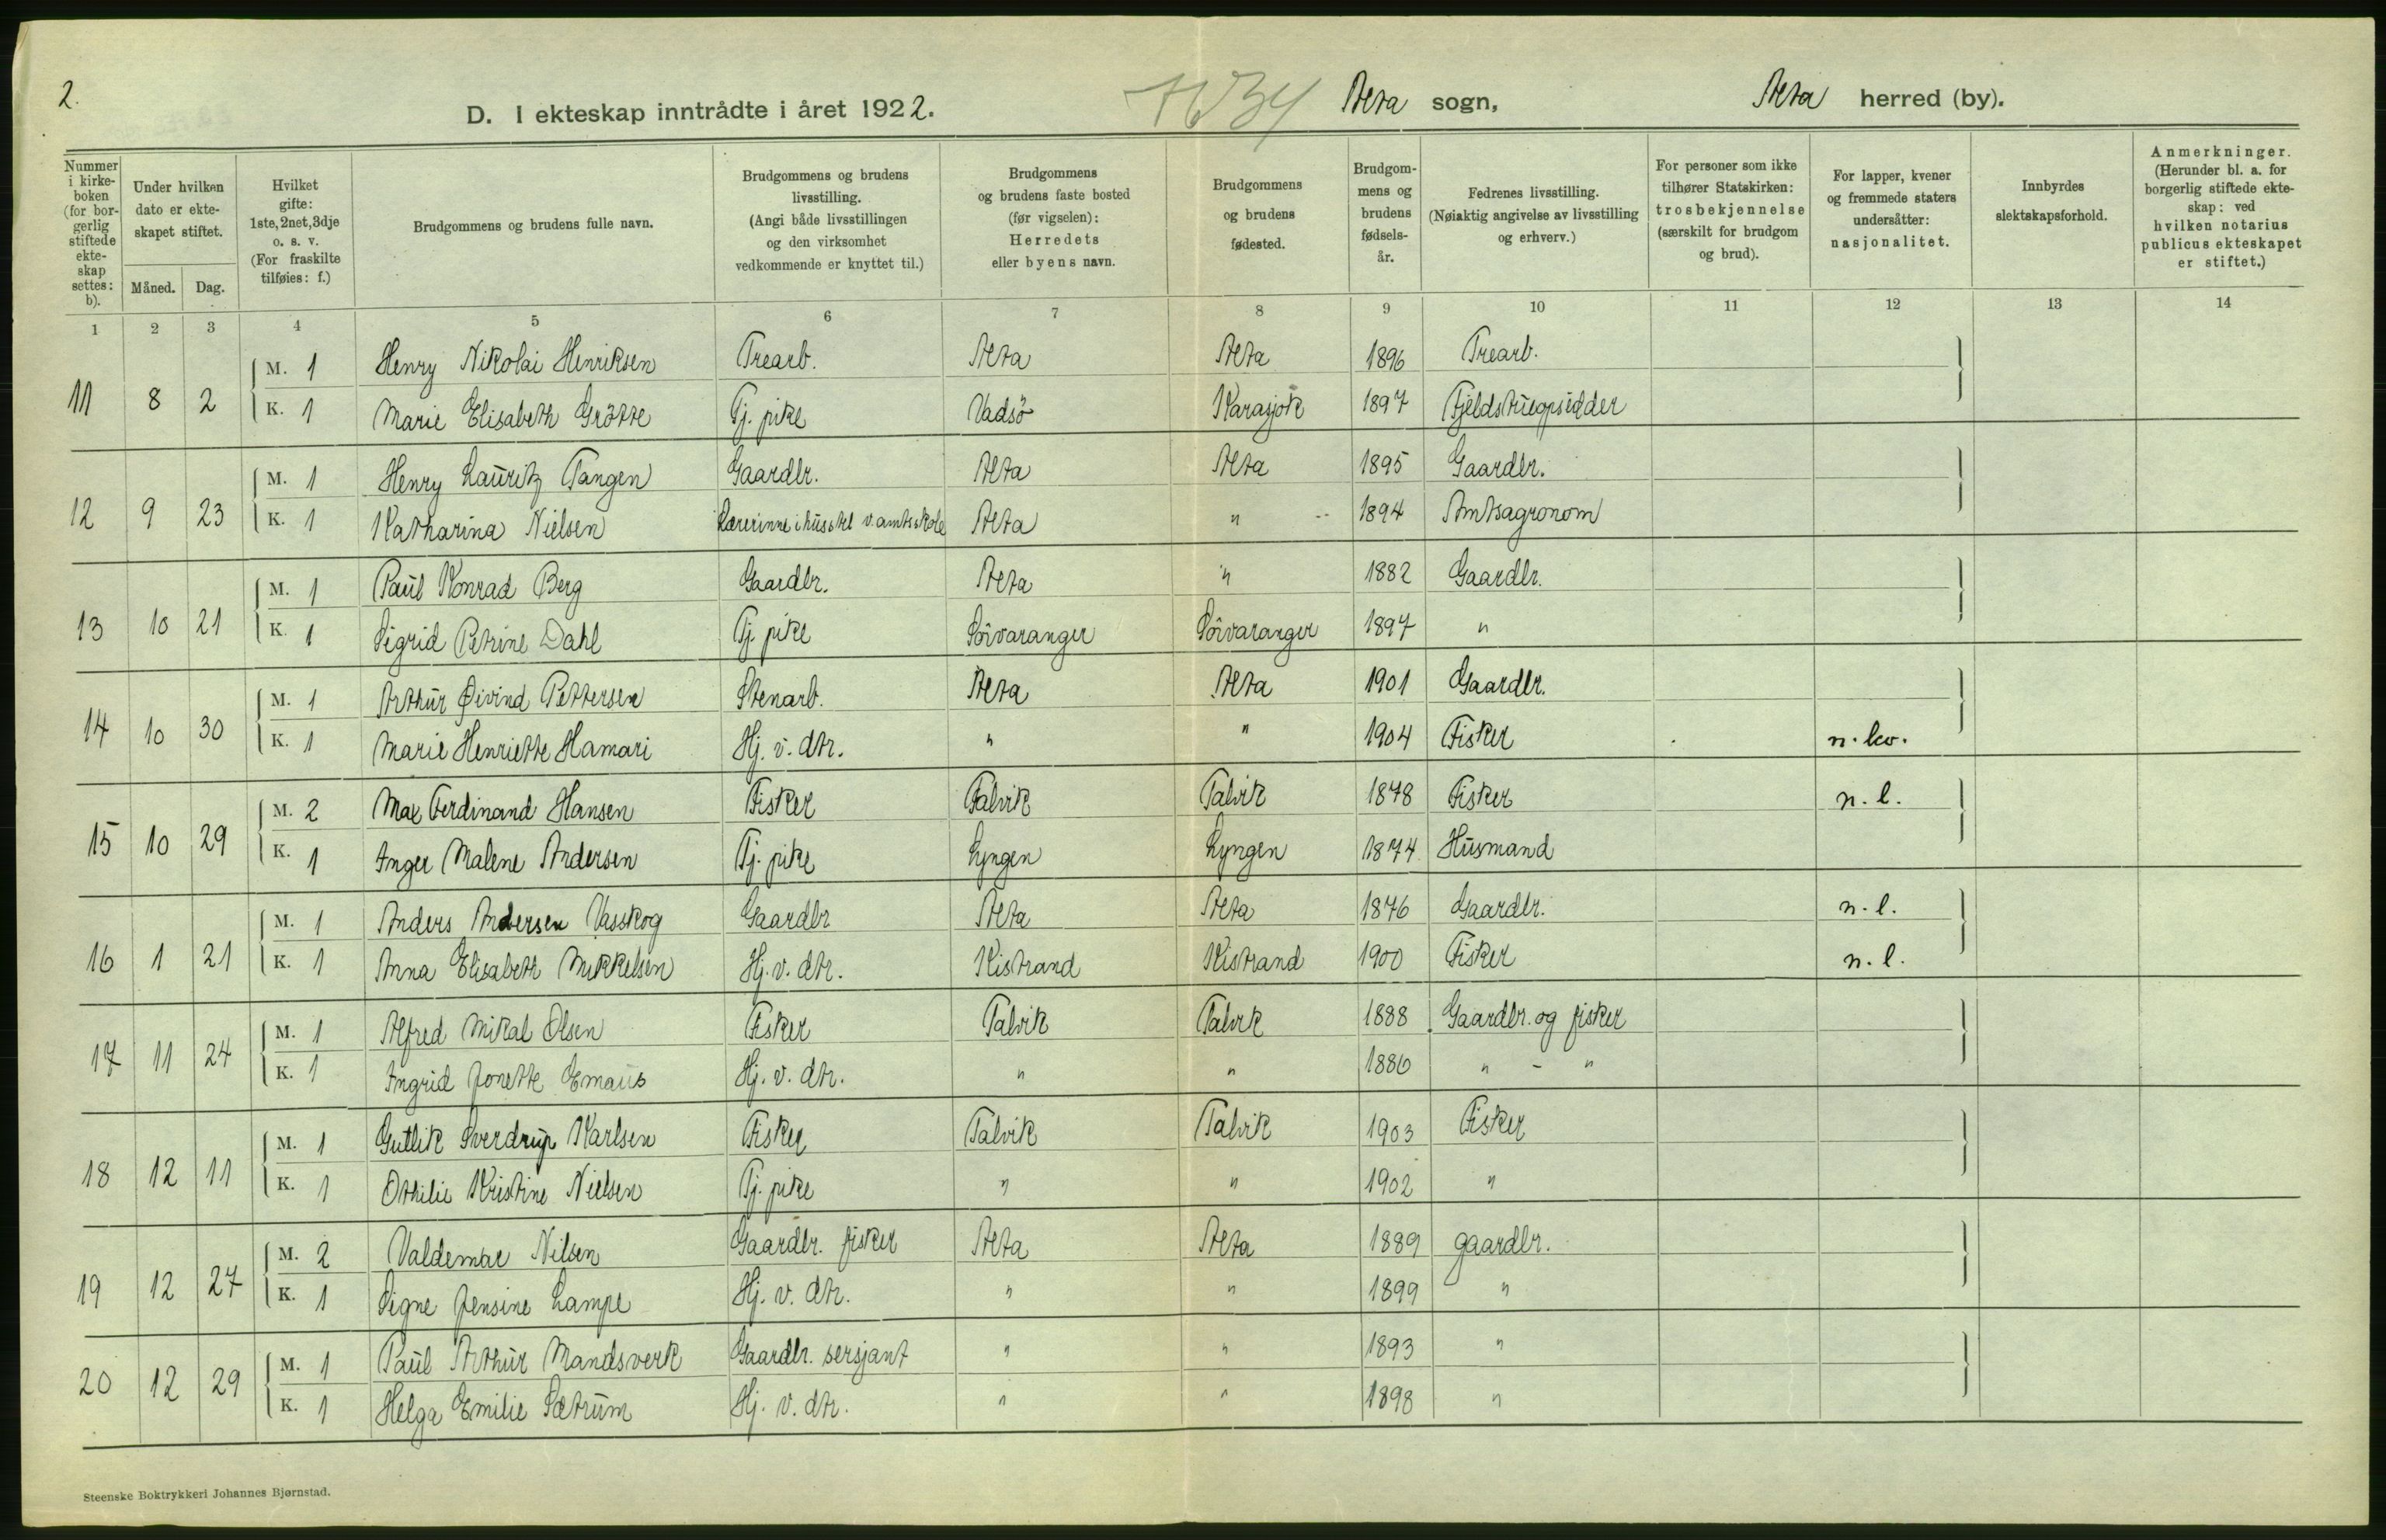 2.
D. I ekteskap inntrådte i året 1922. Alta sogn, Alta herred (by).
Nummer i kirkeboken (for borgerlig stiftede ekteskap settes: b).
Under hvilken dato er ekteskapet stiftet.
Måned. Dag.
Hvilket gifte: 1ste, 2net, 3dje o. s. v. (For fraskilte tilføies: f.)
Brudgommens og brudens fulle navn.
Brudgommens og brudens livsstilling. (Angi både livsstillingen og den virksomhet vedkommende er knyttet til.)
Brudgommens og brudens faste bosted (før vigselen): Herredets eller byens navn.
Brudgommens og brudens fødested.
Brudgommens og brudens fødselsår.
Fedrenes livsstilling. (Nøiaktig angivelse av livsstilling og erhverv.)
For personer som ikke tilhører Statskirken: trosbekjennelse (særskilt for brudgom og brud).
For lapper, kvener og fremmede staters undersåtter: nasjonalitet.
Innbyrdes slektskapsforhold.
Anmerkninger. (Herunder bl. a. for borgerlig stiftede ekteskap: ved hvilken notarius publicus ekteskapet er stiftet.)
1 2 3 4 5 6 7 8 9 10 11 12 13 14
11 8 2 M. 1 Henry Nikolai Henriksen Trearb. Alta Alta 1896 Trearb.
K. 1 Marie Elisabeth Grötte Tj. pike Vadsö Karasjok 1897
12 9 23 M. 1 Henry Lauritz Tangen Gaardbr. Alta Alta 1895 Gaardbr.
K. 1 Katharina Nielsen Lærerinne i husstel v. amtsskole Alta " 1894 Amtsagronom
13 10 21 M. 1 Paul Konrad Berg Gaardbr. Alta " 1882 Gaardbr.
K. 1 Sigrid Petrine Dahl Tj. pike Sörvaranger Sörvaranger 1897 "
14 10 30 M. 1 Arthur Øivind Pettersen Stenarb. Alta Alta 1901 Gaardbr.
K. 1 Marie Henriette Hamari Hj. v. dtr. " " 1904 Fisker n. kv.
15 10 29 M. 2 Max Ferdinand Hansen Fisker Talvik Talvik 1878 Fisker n. l.
K. 1 Inger Malene Andersen Tj. pike Lyngen Lyngen 1874 Husmand
16 1 21 M. 1 Anders Andersen Vasskog Gaardbr Alta Alta 1876 Gaardbr. n. l.
K. 1 Anna Elisabeth Mikkelsen Hj. v. dtr. Kistrand Kistrand 1900 Fisker n. l.
17 11 24 M. 1 Alfred Mikal Olsen Fisker Talvik Talvik 1888 Gaardbr. og fisker
K. 1 Ingrid Jonette Emaus Hj. v. dtr. " " 1886 " - "
18 12 11 M. 1 Gutlik Sverdrup Karlsen Fisker Talvik Talvik 1903 Fisker
K. 1 Othilie Kristine Nielsen Tj. pike " " 1902 "
19 12 27 M. 2 Valdemar Nilsen Gaardbr. fisker Alta Alta 1889 gaardbr.
K. 1 Signe Jensine Lampe Hj. v. dtr. " " 1899 "
20 12 29 M. 1 Paul Arthur Mandsverk Gaardbr. sersjant " " 1893 "
K. 1 Helga Emilie Sætrum Hj. v. dtr. " " 1898 "
Steenske Boktrykkeri Johannes Bjørnstad.